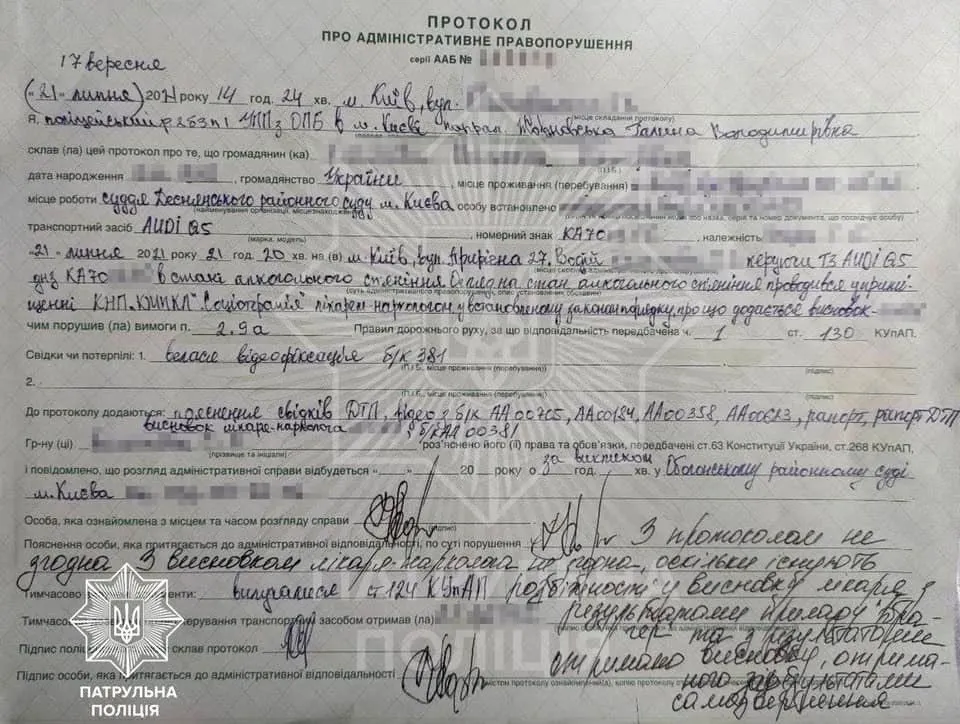 ПРОТОКОЛ
ПРО АДМІНІСТРАТИВНЕ ПРАВОПОРУШЕННЯ
серії ААБ №
17 вересня
(„21" липня) 2021 року 14 год. 24 хв. м. Київ, вул.
(місце складання протоколу)
Я, поліцейський р 2 б 3 п 1 УПП з ОПБ в м. Києві Галина Володимирівна
склав (ла) цей протокол про те, що громадянин (ка)
(П.І.Б.)
дата народження , громадянство України , місце проживання (перебування)
місце роботи суддя Деснянського районного суду м. Києва особу встановлено
транспортний засіб AUDI Q5 , номерний знак КА70 , належність
(марка, модель)
„21" липня 2021 21 год 20 хв на (в) м. Київ, вул. Прирічна 27, Водій керуючи ТЗ AUDI Q5
днз КА70 в стані алкогольного сп'яніння Огляд на стан алкогольного сп'яніння проводився у приміщенні КНП "Соціотерапія" лікарем наркологом, у встановленому законом порядку, про що додається висновок
чим порушив (ла) вимоги п. 2.9а Правил дорожнього руху, за що відповідальність передбачена ч. 1 ст. 130 КУпАП.
Свідки чи потерпілі: 1. відеофіксація б/к 381
(П.І.Б., місце проживання (перебування)) (підпис)
2.
(П.І.Б., місце проживання (перебування)) (підпис)
До протоколу додаються: пояснення свідків ДТП, відео з б/к АА00705, АА00184, АА00358, АА00613, рапорт, рапорт ДТП
висновок лікаря-нарколога , б/к АА 00381
Гр-ну (ці) роз'яснено його (її) права та обов'язки, передбачені ст.63 Конституції України, ст.268 КУпАП,
(прізвище та ініціали)
і повідомлено, що розгляд адміністративної справи відбудеться „ " 20 року о за викликом год. хв. у Оболонському районному суді
м. Києва
Особа, яка ознайомлена з місцем та часом розгляду справи
(підпис)
Пояснення особи, яка притягається до адміністративної відповідальності, по суті порушення З протоколом не
згодна З висновком лікаря-нарколога не згодна, оскільки існують
Тимчасово документи: вилучалися ст 124 КУпАП розбіжності у висновку лікаря з
результатами приладу "Драгер та з результатами
Тимчасо керування транспортним засобом отримав (ла)
Підпис полі склав протокол
отримано висновку, отриманого за результатами
самозвернення
Підпис особи, яка притягається до адміністративної відповідальності
ПАТРУЛЬНА
ПОЛІЦІЯ
ПОЛІЦІЯ